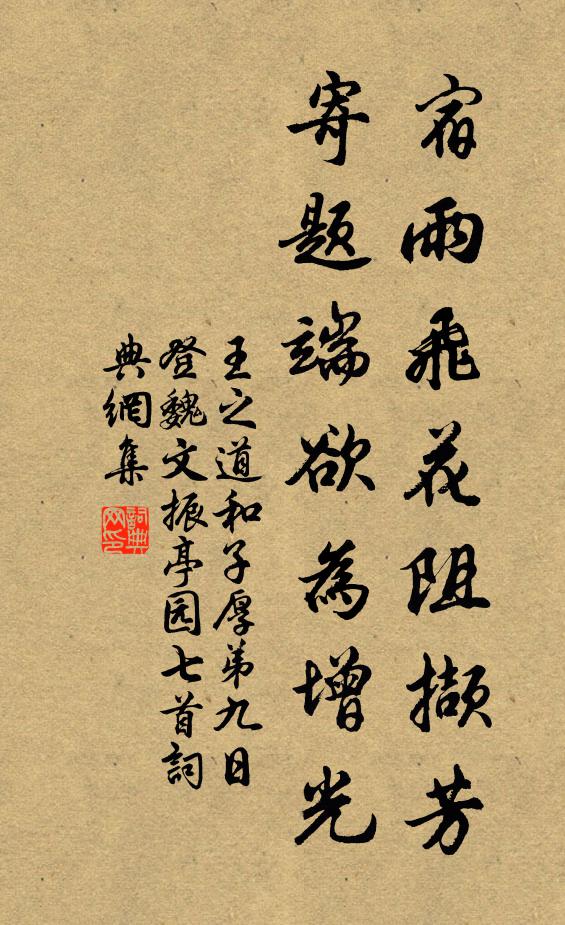 宿雨飛花阻擷芳
寄題端欲為增光
王之道和子厚弟九日
登魏文振亭园七首詞
典網集
詞典網印